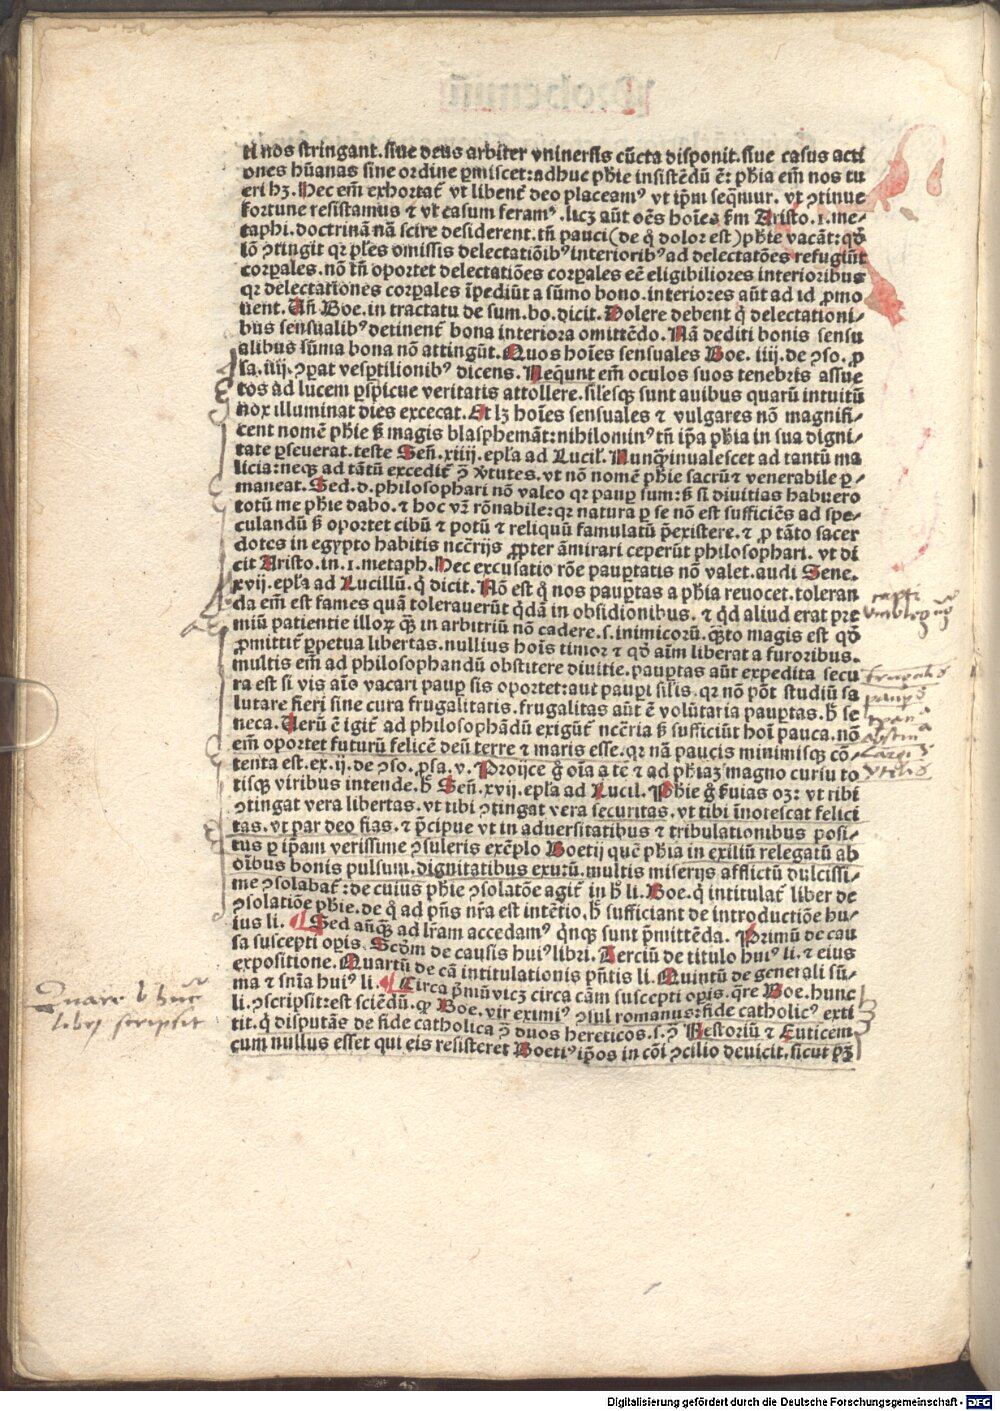 ti nos stringant. siue deus arbiter vniuersis cūcta disponit. siue casus acti
ones hūanas sine ordine ꝑmiscet: adhuc phīe insistēdū ē: phīa em̄ nos tu
eri hꝫ. Hec em̄ exhortat᷑ vt libent᷑ deo placeamꝰ vt ip̄m seq̄mur. vt ꝯtinue
fortune resistamus ⁊ vt casum feramꝰ. licꝫ aūt oēs hoīes ẜm Aristo. i. me-
taphi. doctrinā nā scire desiderent. tn̄ pauci (de q̊ dolor est) phīe vacāt: qd̄
iō ꝯtingit qꝛ ples omissis delectatiōibꝰ interioribꝰ ad delectatōes refugiūt
corꝑales. nō tn̄ oportet delectatiōes corꝑales eē eligibiliores interioribus
qꝛ delectationes corꝑales īpediūt a sūmo bono. interiores aūt ad id ꝓmo
uent. Un̄ Boe. in tractatu de sum. bo. dicit. Dolere debent q̇ delectationi-
bus sensualibꝰ detinent᷑ bona interiora omittēdo. Nā dediti bonis sensu
alibus sūma bona nō attingūt. Quos hoīes sensuales Boe. iiij. de ꝯso. ꝓ
sa. iiij. ꝯꝑat vesꝑtilionibꝰ dicens. Neq̄unt em̄ oculos suos tenebris assue
tos ad lucem ꝑspicue veritatis attollere. silēsqꝫ sunt auibus quarū intuitū
nox illuminat dies excecat. Et lꝫ hoīes sensuales ⁊ vulgares nō magnifi-
cent nomē phīe ß magis blasphemāt: nihilominꝰ tn̄ ip̄a phīa in sua digni-
tate ꝑseuerat. teste Sen̄. xiiii. epl̄a ad Lucil̄. Nunq̄ inualescet ad tantū ma
licia: neqꝫ ad tātū excedit᷑ ꝯ v̄tutes. vt nō nomē phīe sacrū ⁊ venerabile ꝑ-
maneat. Sed. d. philosophari nō valeo qꝛ pauꝑ sum: ß si diuitias habuero
totū me phīe dabo. ⁊ hoc vꝫ rōnabile: qꝛ natura ꝑ se nō est sufficiēs ad spe-
culandū ß oportet cibū ⁊ potū ⁊ reliquū famulatū p̄existere. ⁊ ꝓ tāto sacer
dotes in egypto habitis nccīrijs ꝓpter āmirari ceperūt philosophari. vt di
cit Aristo. in. i. metaph. Hec excusatio rōe pauꝑtatis nō valet. audi Sene.
xvij. epl̄a ad Lucillū. q̇ dicit. Nō est q̊ nos pauꝑtas a phīa reuocet. toleran
da em̄ est fames quā tolerauerūt q̇dā in obsidionibus. ⁊ qd̄ aliud erat pre
miū patientie illoꝝ qꝫ in arbitriū nō cadere. s. inimicorū. q̄to magis est qd̄
ꝓmittit᷑ ꝑpetua libertas. nullius hoīs timor ⁊ qd̄ aīm liberat a furoribus.
multis em̄ ad philosophandū obstitere diuitie. pauꝑtas aūt expedita secu
ra est si vis aīo vacari pauꝑ sis oportet: aut pauꝑi silis. qꝛ nō pōt studiū sa
lutare fieri sine cura frugalitatis. frugalitas aūt ē volūtaria pauꝑtas. h̄ se
neca. Uerū ē igit᷑ ad philosophādū exigūt᷑ nccīria ß sufficiūt hoī pauca. nō
em̄ oportet futurū felicē deū terre ⁊ maris esse. qꝛ nā paucis minimisqꝫ cō-
tenta est. ex. ij. de ꝯso. ꝓsa. v. Proijce g̊ oīa a tē ⁊ ad phīaꝫ magno cursu to
tisqꝫ viribus intende. h̄ Sen̄. xvij. epl̄a ad Lucil. Phīe g̊ ẜuias oꝫ: vt tibi
ꝯtingat vera libertas. vt tibi ꝯtingat vera securitas. vt tibi īnotescat felici
tas. vt par deo fias. ⁊ p̄cipue vt in aduersitatibus ⁊ tribulationibus posi-
tus ꝑ ip̄am verissime ꝯsuleris exēplo Boetij quē phīa in exiliū relegatū ab
oībus bonis pulsum. dignitatibus exutū. multis miserijs afflictū dulcissi-
me ꝯsolabat᷑: de cuius phīe ꝯsolatōe agit᷑ in h̄ li. Boe. q̇ intitulat᷑ liber de
ꝯsolatiōe phīe. de q̊ ad pn̄s nr̄a est intētio. h̄ sufficiant de introductiōe hu-
ius li. ¶ Sed anq̄ꝫ ad lr̄am accedamꝰ q̇nqꝫ sunt p̄mittēda. Primū de cau
sa suscepti oꝑis. Scd̄m de causis huiꝰ libri. Terciū de titulo huiꝰ li. ⁊ eius
expositione. Quartū de cā intitulationis pn̄tis li. Quintū de generali sū-
ma ⁊ sn̄ia huiꝰ li. ¶ Circa p̄miū vicꝫ circa cām suscepti oꝑis. q̄re Boe. hunc
li. ꝯscripsit: est sciēdū. qꝙ Boe. vir eximiꝰ ꝯsul romanus: fide catholicꝰ exti
tit. q̇ disputās de fide catholica ꝯ duos hereticos. s. ꝯ Nestoriū ⁊ Euticem
cum nullus esset qui eis resisteret Boetiꝰ ip̄os in cōi ꝯcilio deuicit. sicut pꝫ
Quare b hūc
libꝝ scripsit